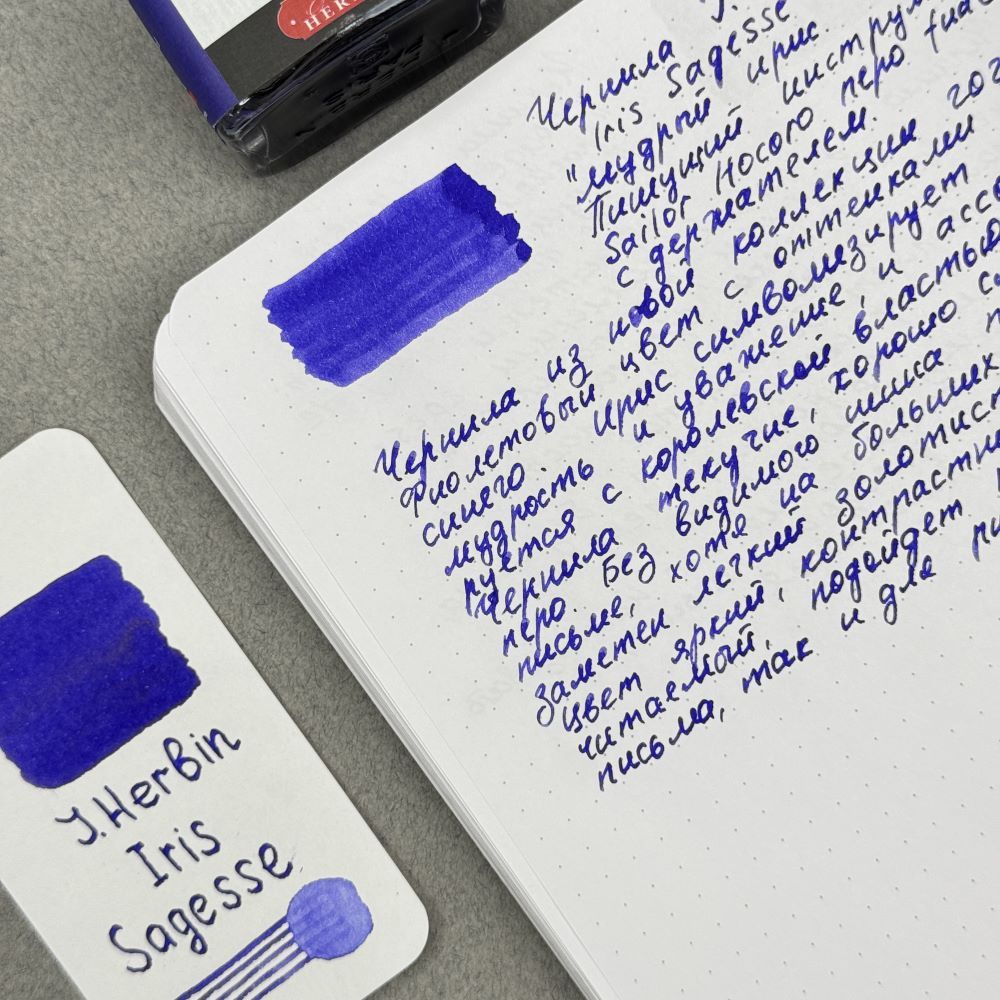 HERB
J.
Чернила
Iris Sagesse
"мудрый ирис.
Пишущий инструм
Sailor Hocoro перо fude
с держателем.
Чернила из новой коллекции
фиолетовый цвет с оттенками
синего. Ирис символизирует
мудрость и уважение, и ассо
руется с королевской властью
Чернила текучие, хорошо с
перо. Без видимого шика
письме, хотя на больших
заметен легкий золотист
цвет яркий, контрастн
читаемый, подойдет
письма, так и для ри
J.HerBin
Iris
Sagesse